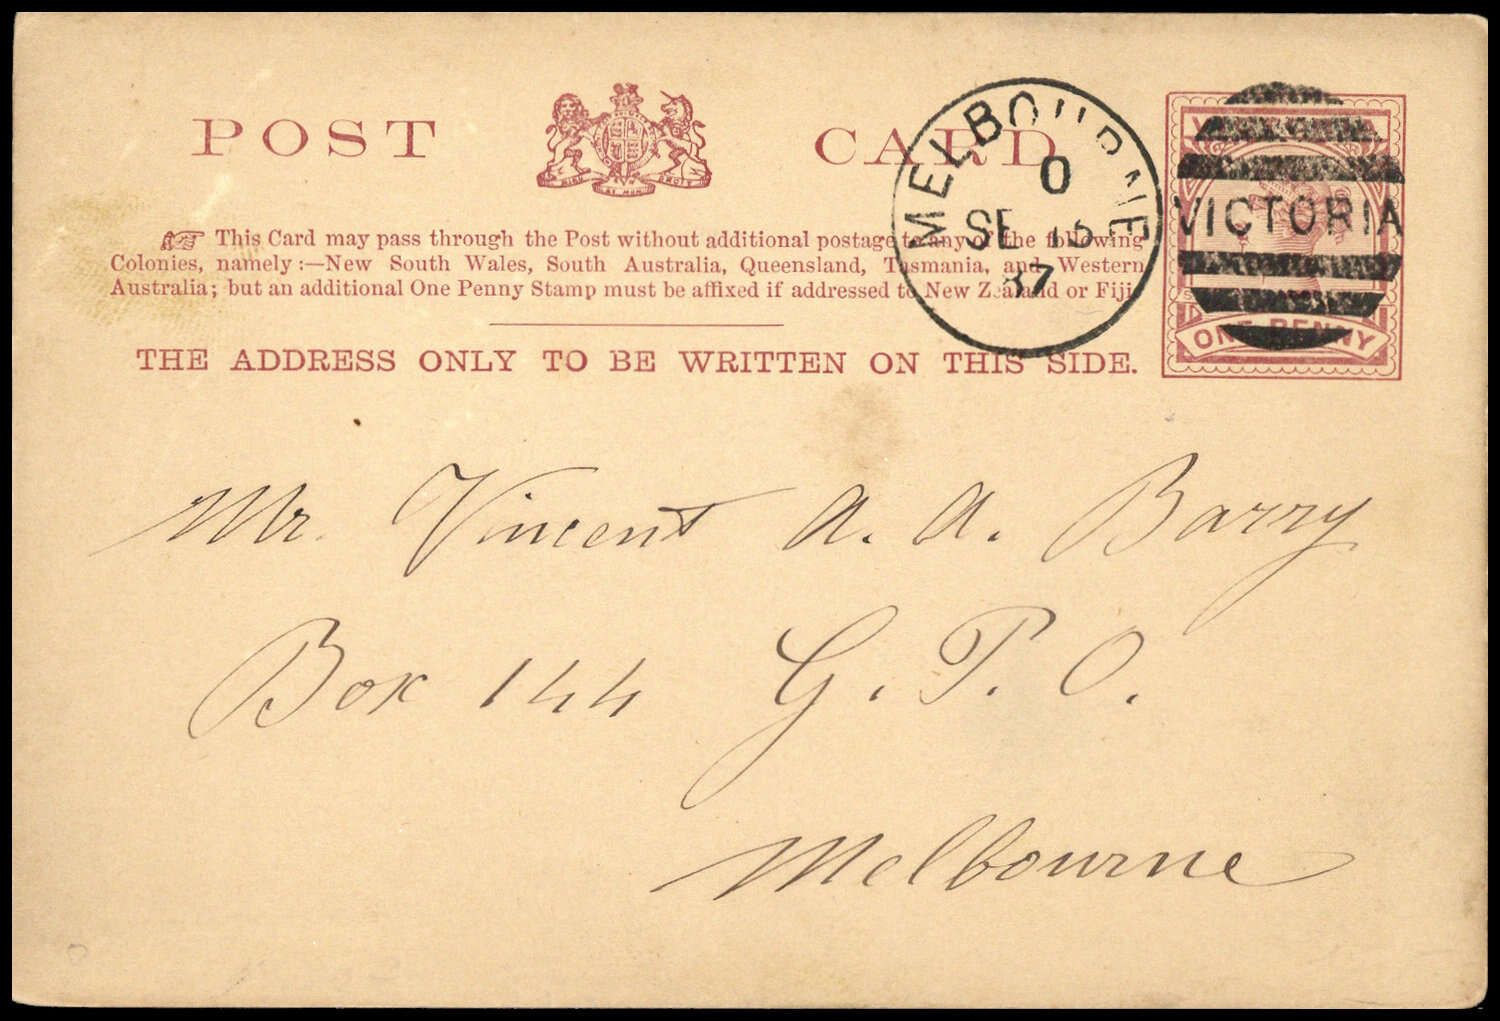 POST CARD
MELBOURNE
0
SE
87
VICTORIA
ONE PENNY
This Card may pass through the Post without additional postage to any of the following
Colonies, namely:—New South Wales, South Australia, Queensland, Tasmania, and Western
Australia; but an additional One Penny Stamp must be affixed if addressed to New Zealand or Fiji.
THE ADDRESS ONLY TO BE WRITTEN ON THIS SIDE.
Mr. Vincent A. A. Barry
Box 144 G. P. O.
Melbourne